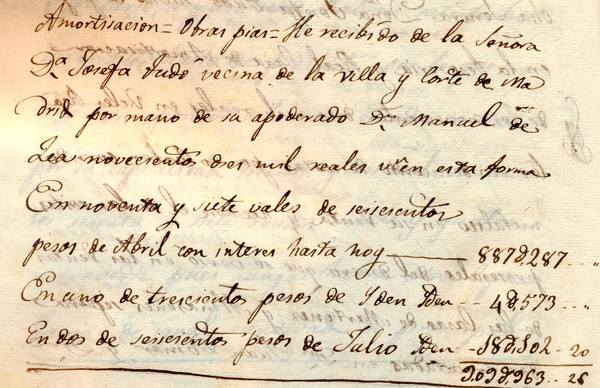 Amortisacion = Obras pias = He recibido de la Señora
Dª Josefa Tudó vecina de la villa y Corte de Ma
drid por mano de su apoderado Dn Manuel de
Zea novecientos dres mil reales vn en esta forma
En noventa y siete vales de seiscientos
pesos de Abril con interes hasta hoy —— 887d.287 - - "
En uno de trescientos pesos de Yden Yden - - 4d.573 - - "
En dos de seiscientos pesos de Julio Yden - 18d.102 - 20
909d.963 - - 26